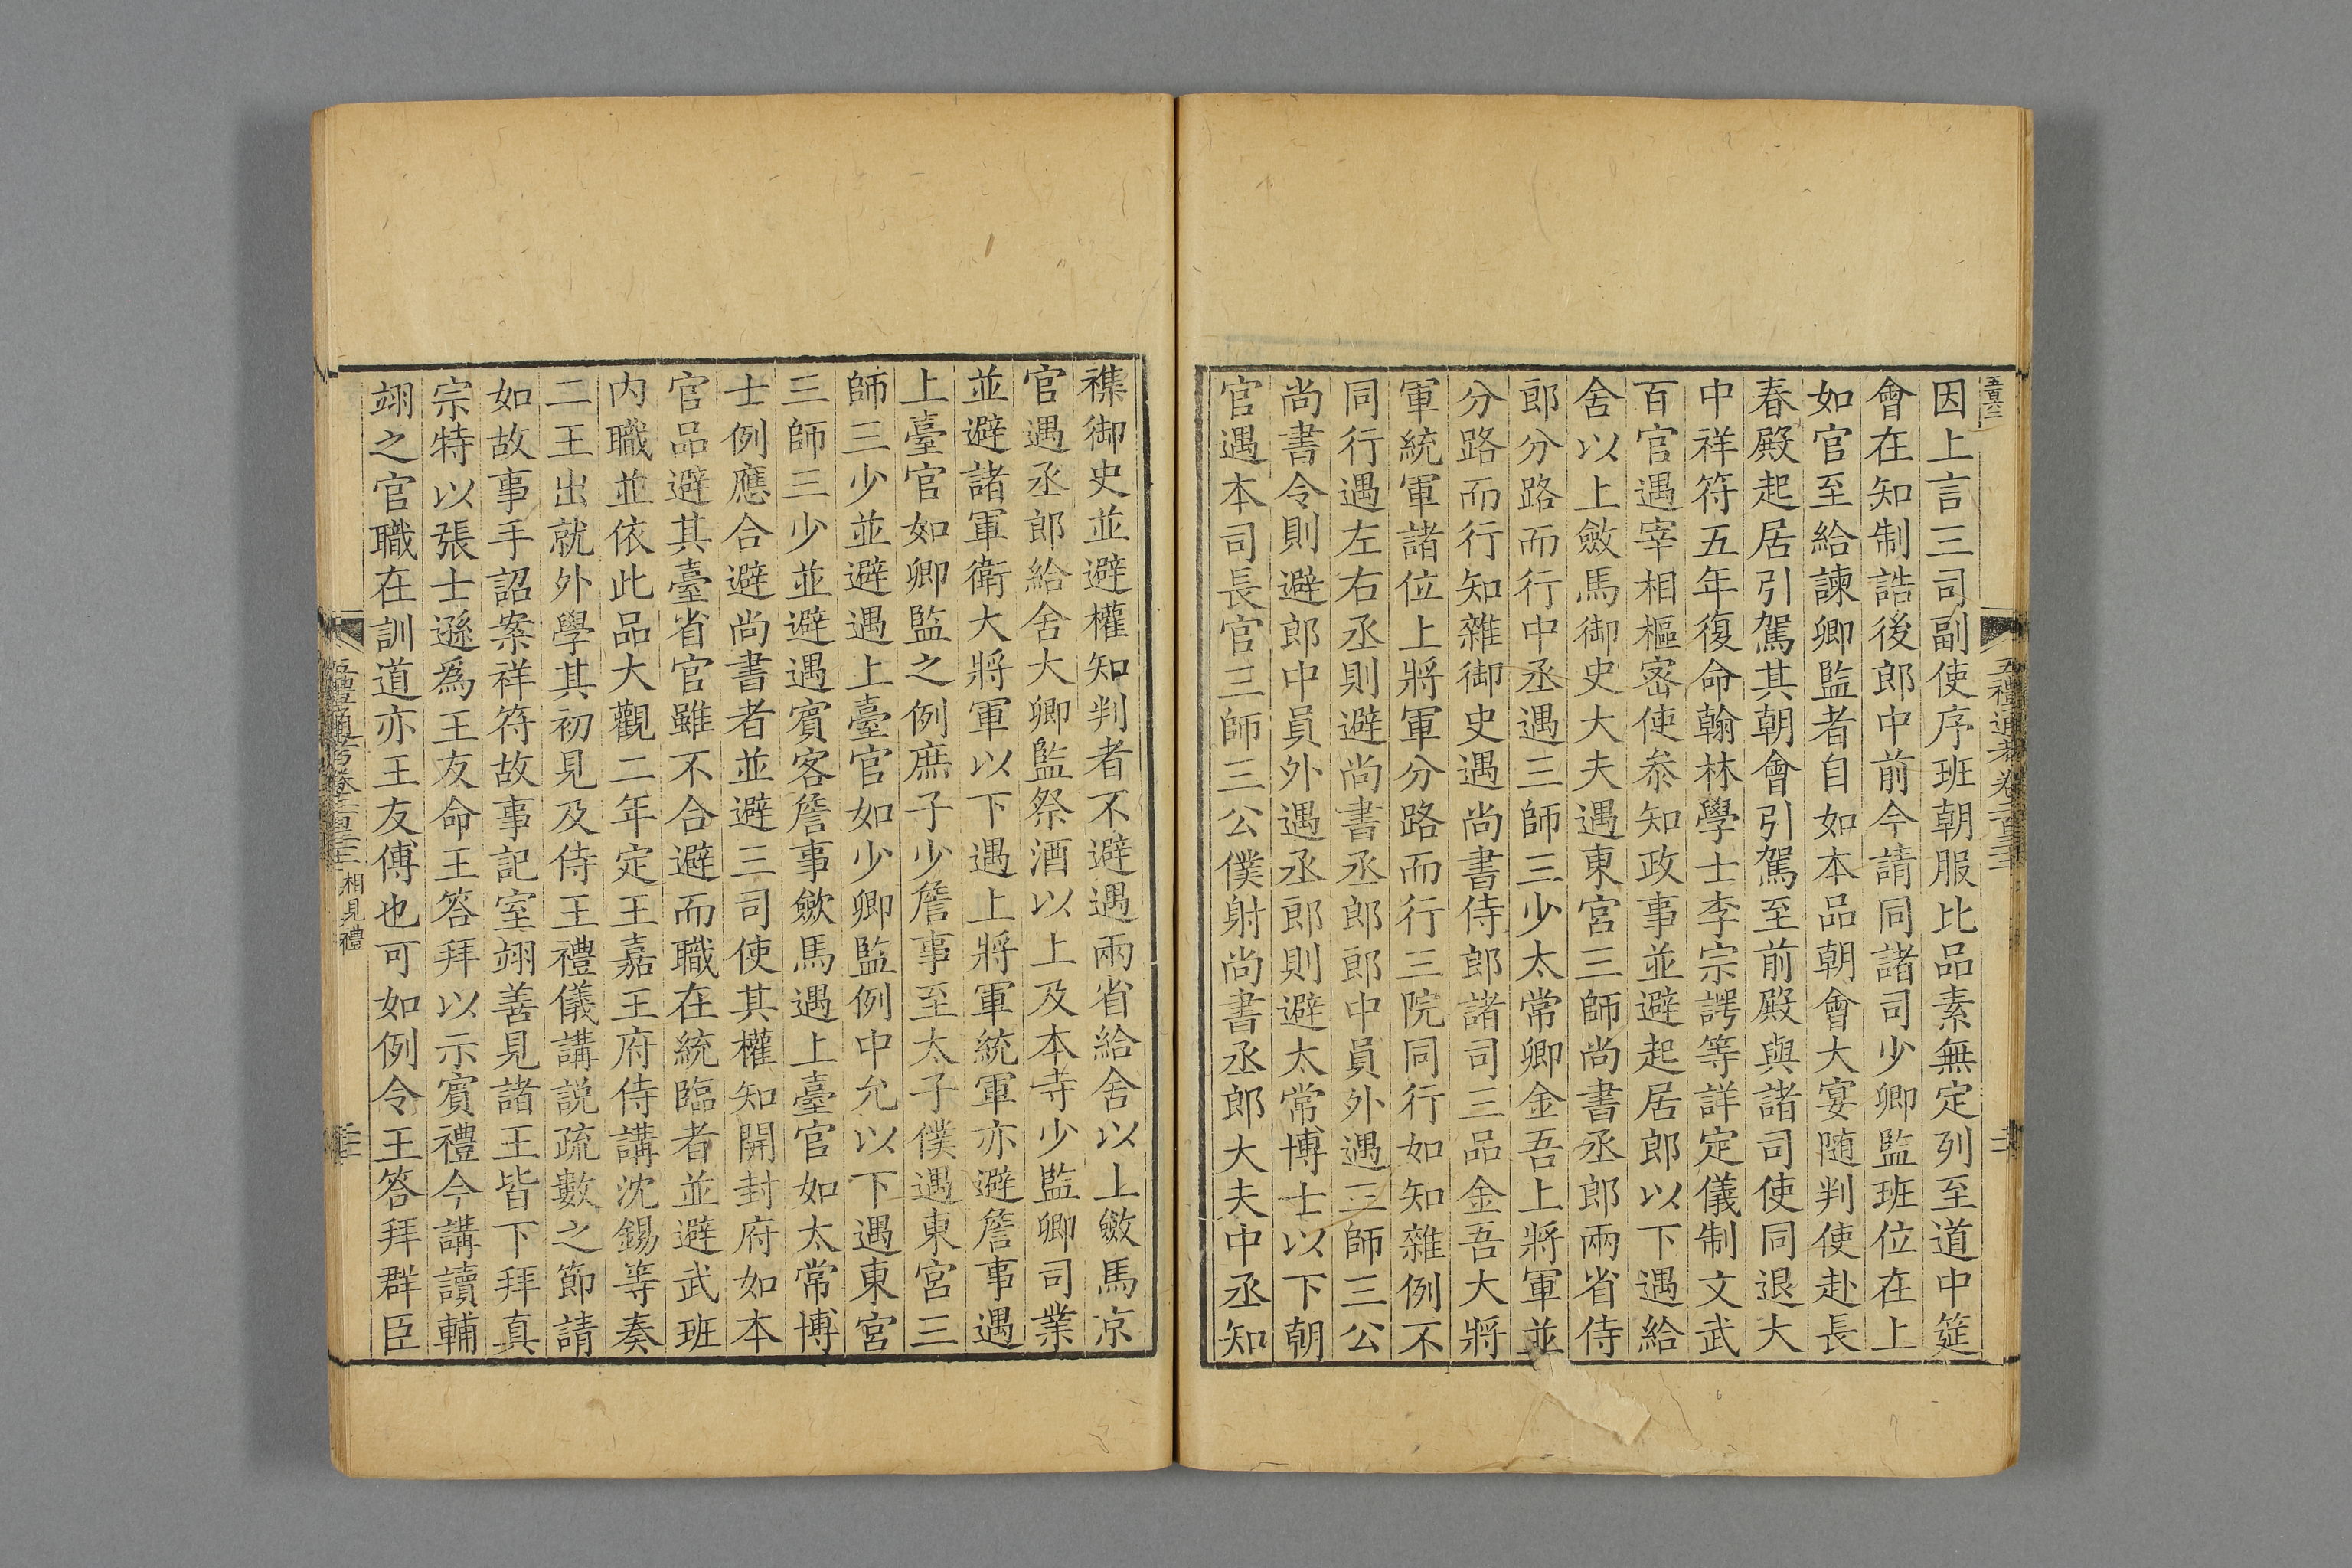 因上言三司副使序班朝服比品素無定列至道中筵
會在知制誥後郎中前今請同諸司少卿監班位在上
如官至給諫卿監者自如本品朝會大宴随判使赴長
春殿起居引駕其朝會引駕至前殿與諸司使同退大
中祥符五年復命翰林學士李宗諤等詳定儀制文武
百官遇宰相樞密使叅知政事並避起居郎以下遇給
舍以上斂馬御史大夫遇東宮三師尚書丞郎兩省侍
郎分路而行中丞遇三師三少太常卿金吾上將軍並
分路而行知雜御史遇尚書侍郎諸司三品金吾大將
軍統軍諸位上將軍分路而行三院同行如知雜例不
同行遇左右丞則避尚書丞郎郎中員外遇三師三公
尚書令則避郎中員外遇丞郎則避太常博士以下朝
官遇本司長官三師三公僕射尚書丞郎大夫中丞知
襍御史並避權知判者不避遇兩省給舍以上斂馬京
官遇丞郎給舍大卿監祭酒以上及本寺少監卿司業
並避諸軍衛大將軍以下遇上將軍統軍亦避詹事遇
上臺官如卿監之例庶子少詹事至太子僕遇東宮三
師三少並避遇上臺官如少卿監例中允以下遇東宮
三師三少並避遇賓客詹事斂馬遇上臺官如太常博
士例應合避尚書者並避三司使其權知開封府如本
官品避其臺省官雖不合避而職在統臨者並避武班
内職並依此品大觀二年定王嘉王府侍講沈錫等奏
二王出就外學其初見及侍王禮儀講説疏數之節請
如故事手詔案祥符故事記室翊善見諸王皆下拜真
宗特以張士遜爲王友命王答拜以示賓禮今講讀輔
翊之官職在訓道亦王友傅也可如例令王答拜群臣
相見禮